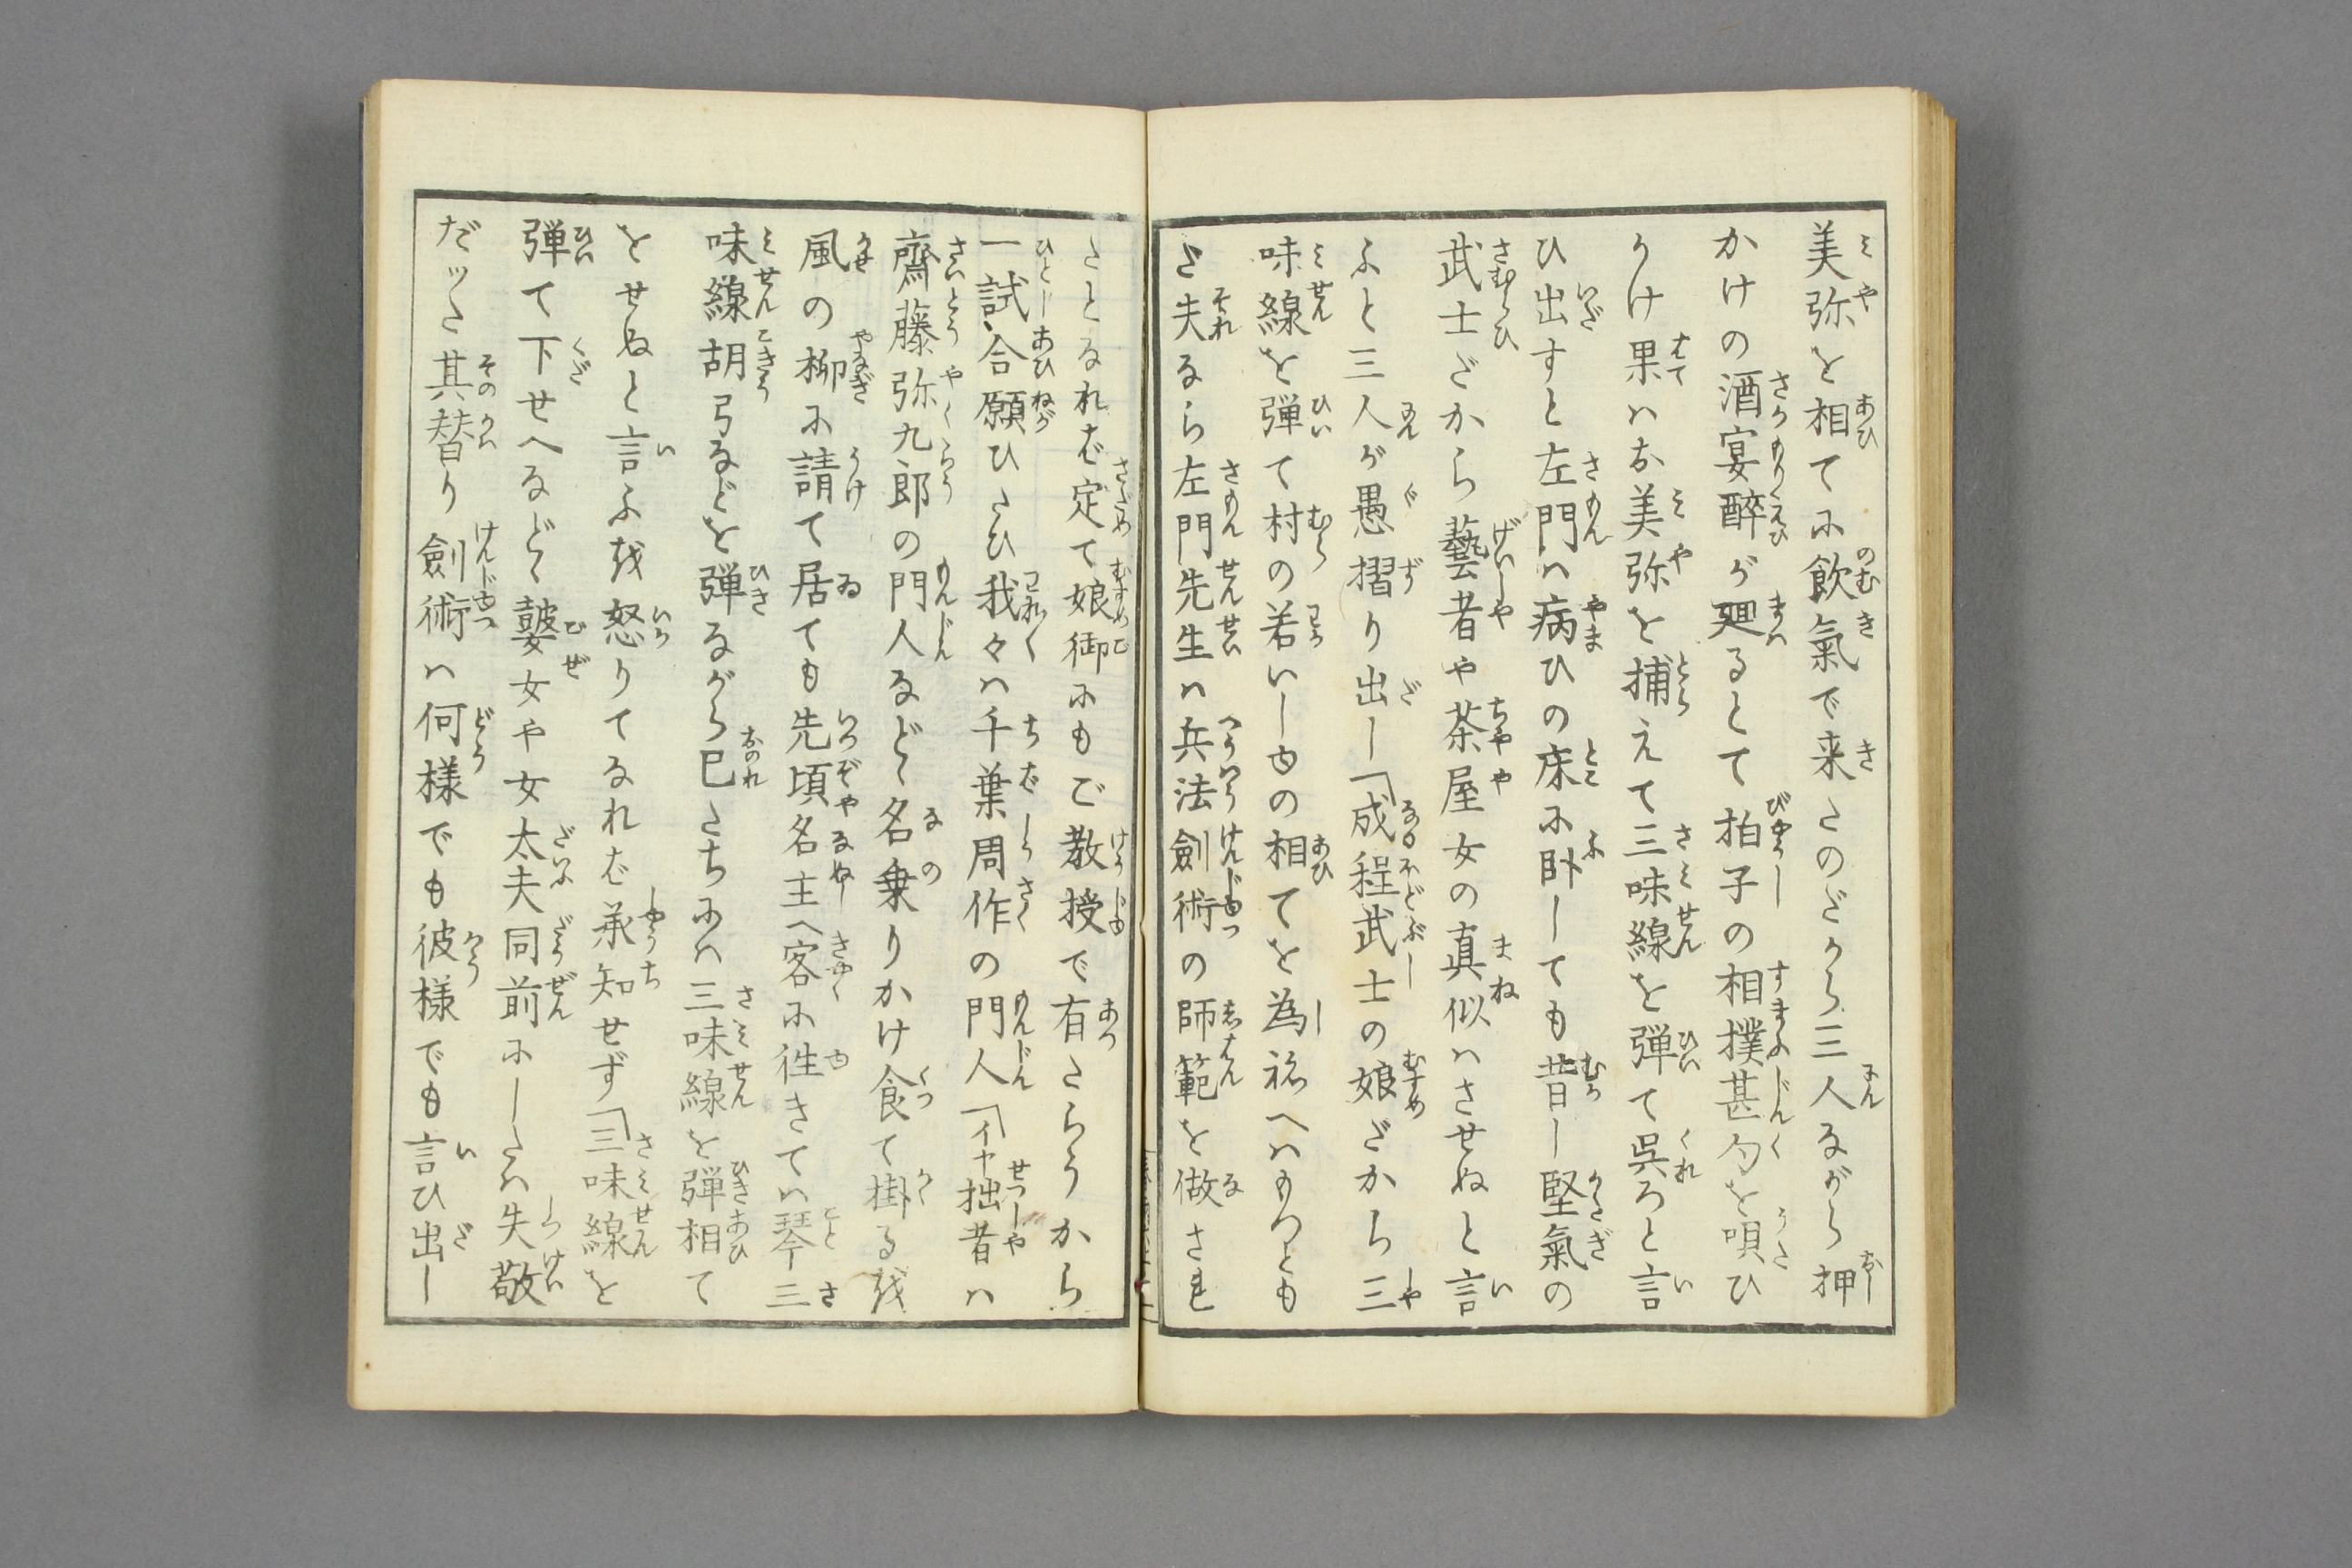 美弥を相てに飲氣で来たのだから三人ながら押
かけの酒宴醉が廻るとて拍子の相撲甚句を唄ひ
かけ果はお美弥を捕えて三味線を弾て呉ろと言
ひ出すと左門は病ひの床に卧しても昔し堅氣の
武士だから藝者や茶屋女の真似はさせぬと言
ふと三人が愚摺り出し「成程武士の娘だから三
味線を弾て村の若いしゆの相てを為祢へはもつとも
だ夫なら左門先生は兵法劍術の師範を做され
たとなれば定て娘御にもご教授で有たらうから
一試合願ひたひ我々は千葉周作の門人「イヤ拙者は
齋藤弥九郎の門人など名乗りかけ食て掛るを
風の柳に請て居ても先頃名主へ客に徃きては琴三
味線胡弓などを弾ながら己たちには三味線を弾相て
をせぬと言ふを怒りてなれば承知せず「三味線を
弾て下せへなど瞽女や女太夫同前にしたは失敬
だッた其替り劍術は何様でも彼様でも言ひ出し